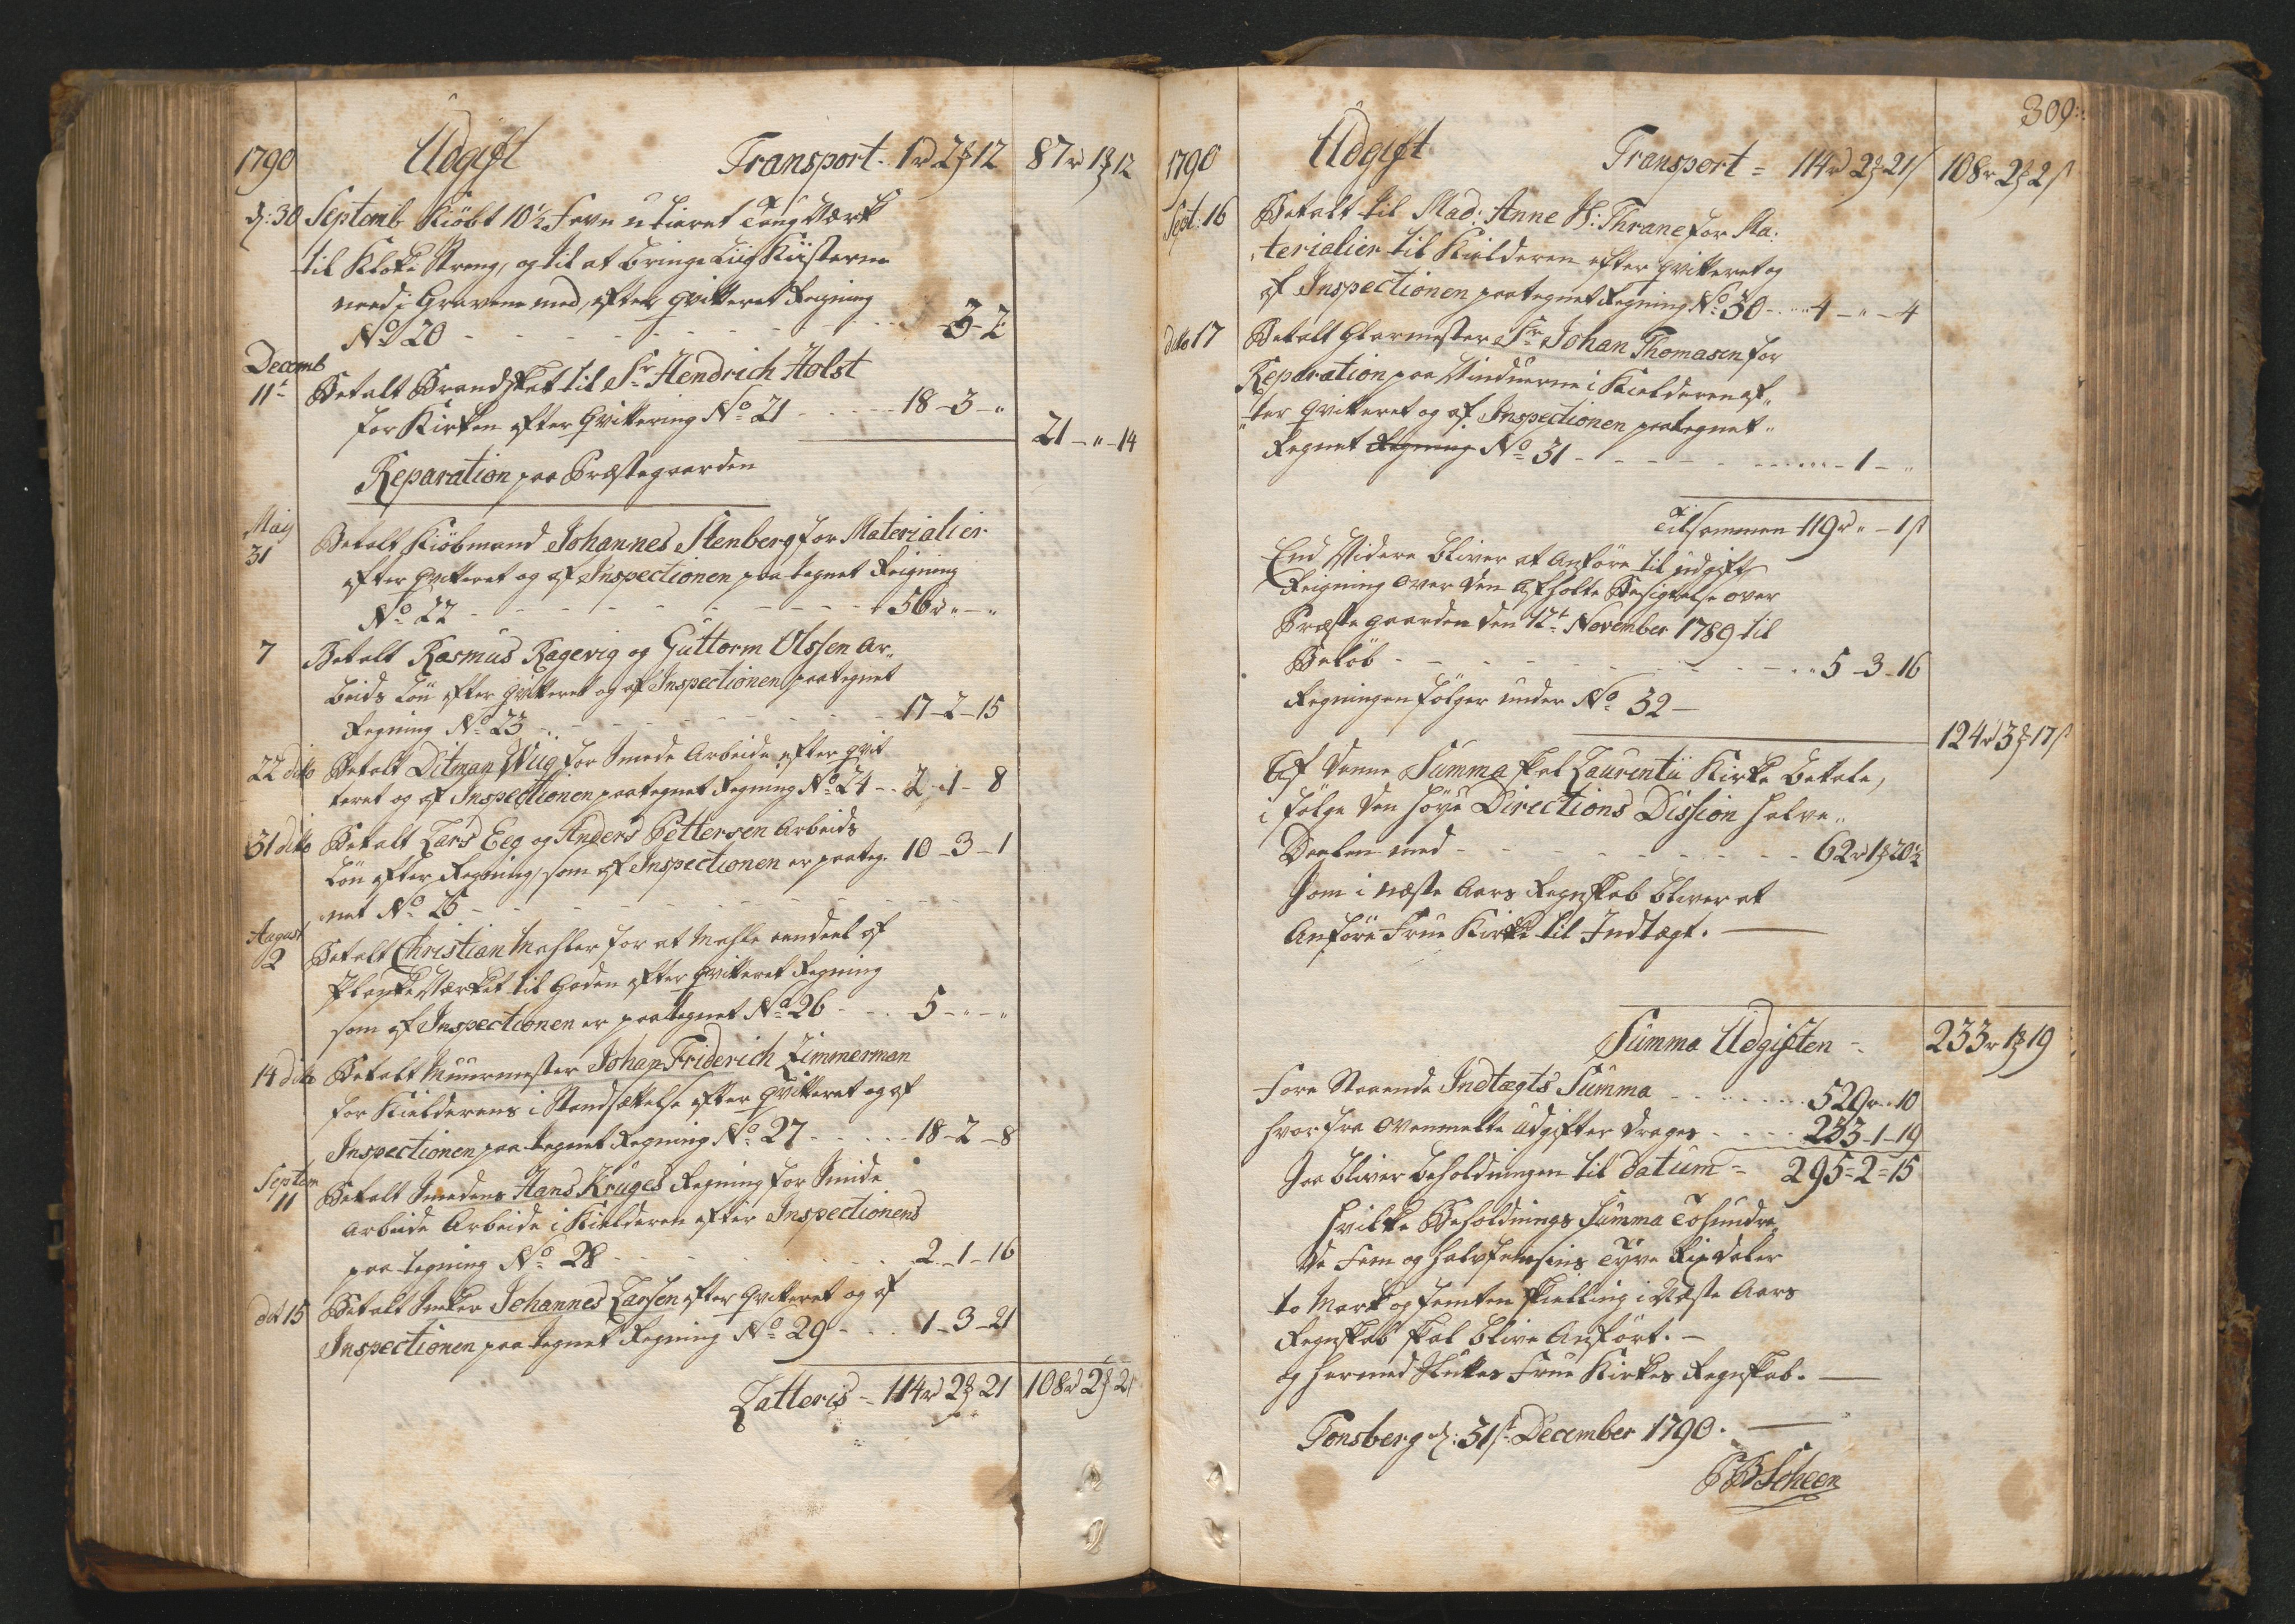 1790 Udgift Transport - 1rd 2ʒ 12 87rd 1ʒ 12
d: 30 Septemb Kiöbt 10½ Favn utieret Toug Værk
til Kloke Streng, og til at bringe Liig Kisterne
need i Gravene med, efter qvitteret Reigning
No 20 - - - - - - - - 3 - 2
Decemb
11te Betalt Brandskat til Sr Hendrich Holst
for Kirken efter Qvittering No 21 - - - - 18 - 3 - "
21 - " - 14
Reparation paa Præstegaarden
Maij
31 Betalt Kiöbmand Johannes Stenberg for Materialier
efter qvitteret og af Inspectionen paategnet Reigning
No 22 - - - - - - - - 56rd " - "
7 Betalt Rasmus Ragevig og Guttorm Olssen Ar„
beids Lön efter qvitteret og af Inspectionen paategnet
Regning No 23 - - - - - - - - 17 - 2 - 15
22 dito Betalt Ditman Wug for Smede Arbeide efter qvit
teret og af Inspectionen paategnet Regning No 24 - - 2 - 1 - 8
31 dito Betalt Lars Eeg og Anders Pettersen Arbeids
Lön efter Regning, som af Inspectionen er paateg- 10 - 3 - 1
net No 25 - - - - - - - -
August
2 Betalt Christian Mahler for at Mahle eendeel af
Planke Værket til Gaden efter qvitteret Regning
som af Inspectionen er paategnet No 26 - - - 5 - " - "
14 dito Betalt Muurmester Johan Friderich Zimmerman
for Kielderens i Standsættelse efter qvitteret og af
Inspectionen paategnet Regning No 27 - - - - - 18 - 2 - 8
Septem
11 Betalt Smedens Hans Kruges Regning for Smide
Arbeide Arbeide i Kielderen efter Inspectionens
paategning No 28 - - - - - - 2 - 1 - 16
dit 15 Betalt Sneker Johannes Larsen efter qvitteret og af
Inspectionen paategnet Regning No 29 - - - 1 - 3 - 21
Latteris - 114rd 2ʒ 21 108rd 2ʒ 2ß
309:
1790 Udgift Transport = 114rd 2ʒ 21ß 108rd 2ʒ 2ß
Sept: 16 Betalt til Mad: Anne H: Thrane for Ma„
terialier til Kielderen efter qvitteret og
af Inspectionen paategnet Regning No 30 - - - 4 - " - 4
dito 17 Betalt Glarmester Sr Johan Thomasen for
Reparation paa Vinduerne i Kielderen ef„
„ter qvitteret og af Inspectionen paategnet„
Regnet Regning No 31 - - - - - - - 1 - "
Tilsammen 119rd " - 1ß
End Videre bliver at Anföre til udgift
Reigning over den Afholte Besigtelse over
Præste gaarden den 12te November 1789 til
Belöb - - - - - - - - 5 - 3 - 16
Regningen fölger under No 32 -
124rd 3ʒ 17ß
Af denne Summa skal Laurentii Kirke betale,
i fölge den höye Directions Dission halve„
Deelen med - - - - - - - 62rd 1ʒ 20½
som i næste Aars Regnskab bliver at
Anföre Frue Kirke til Indtægt. —
Summa Udgiften - 233rd 1ʒ 19
Fore Staaende Indtægts Summa - - - - - - 529rd - 10
hvorfra Ovenmelte Udgifter drages - - - - 233 - 1 - 19
saa bliver beholdningen til datum = 295 = 2 = 15
hvilke Beholdnings Summa Tohundre„
de Fem og halvfemsins Tyve Rixdaler
to Mark og femten skielling i Næste Aars
Regnskab skal blive Anfört. -
og hermed Sluttes Frue Kirkes Regnskab. —
Tonsberg d: 31st December 1790. —
PBScheen